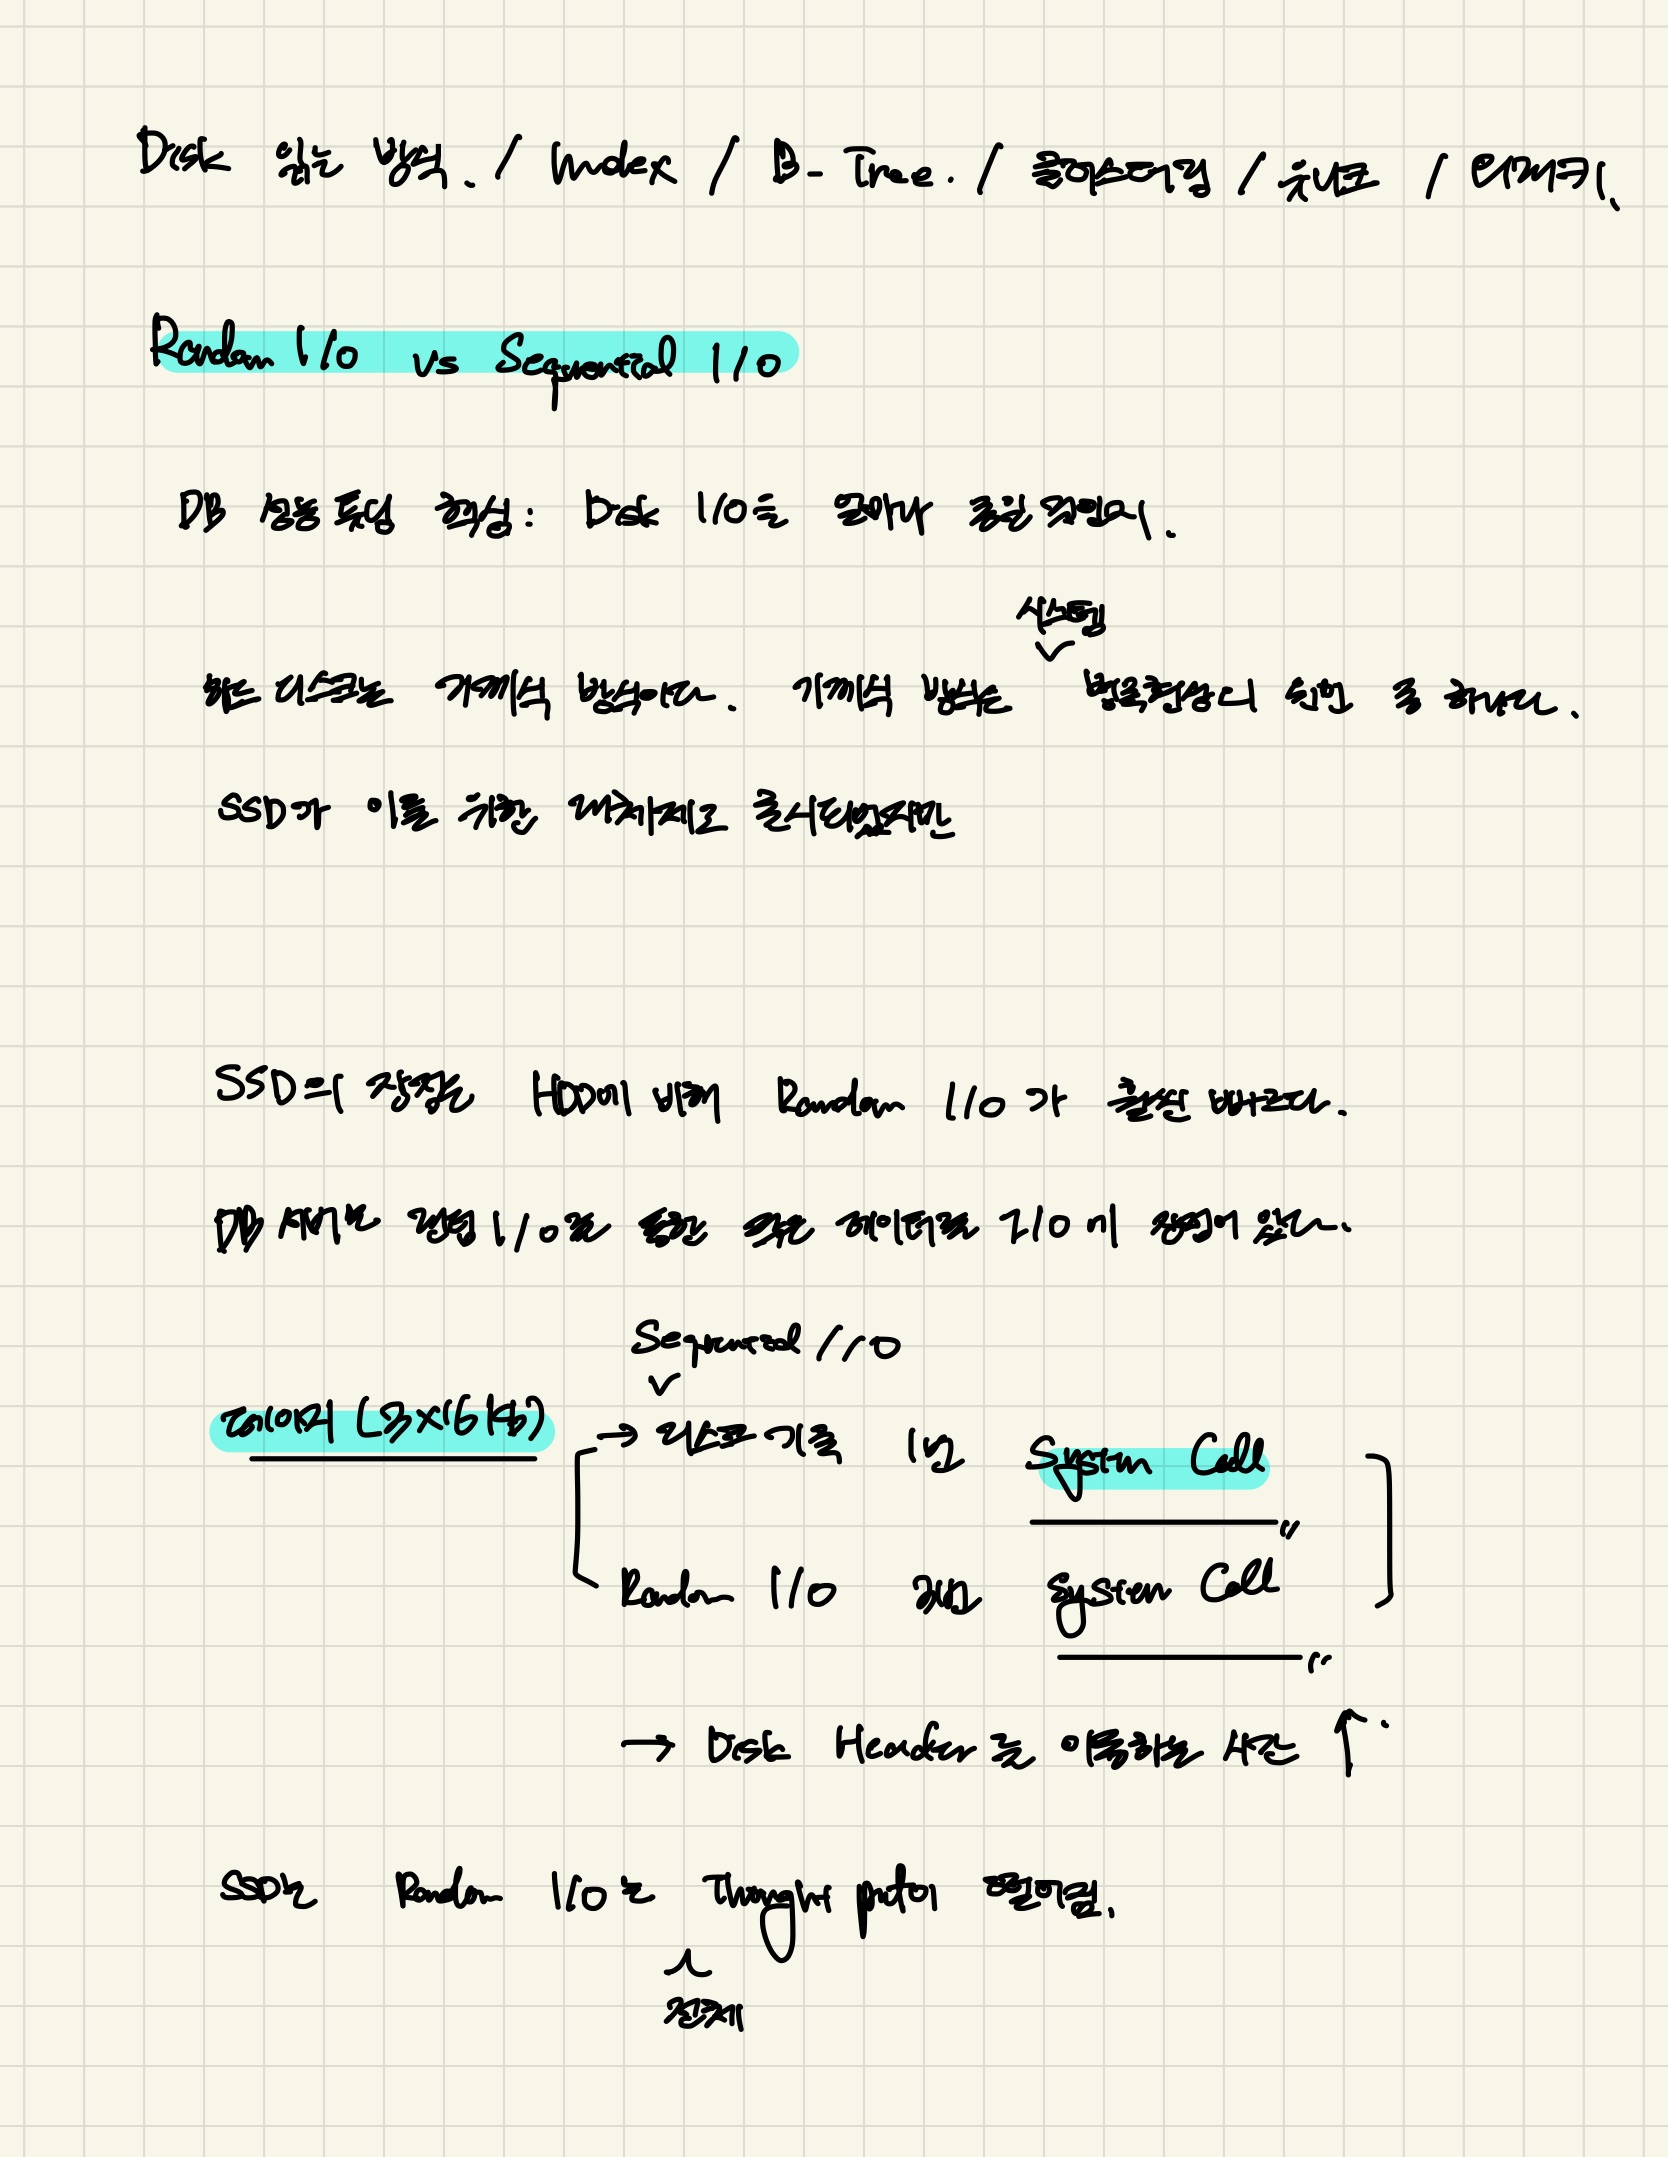 Disk 읽는 방식. / Index / B-Tree. / 클러스터링 / 유니크 / 외래키.
Random I/O vs Sequential I/O
DB 성능 튜닝 핵심: Disk I/O를 얼마나 줄일 것인지.
시스템
하드 디스크는 기계식 방식이다. 기계식 방식은 병목현상의 원인 중 하나다.
SSD가 이를 위한 대체제로 출시되었지만
SSD의 장점은 HDD에 비해 Random I/O가 훨씬 빠르다.
DB 서버는 랜덤 I/O를 통한 작은 데이터를 I/O에 장점이 있다.
Sequential I/O
페이지 (3×16kb)
→ 디스크 기록 1번 System Call
Random I/O 3번 System Call
→ Disk Header를 이동하는 시간 ↑.
SSD는 Random I/O는 Throught put이 떨어짐.
전체